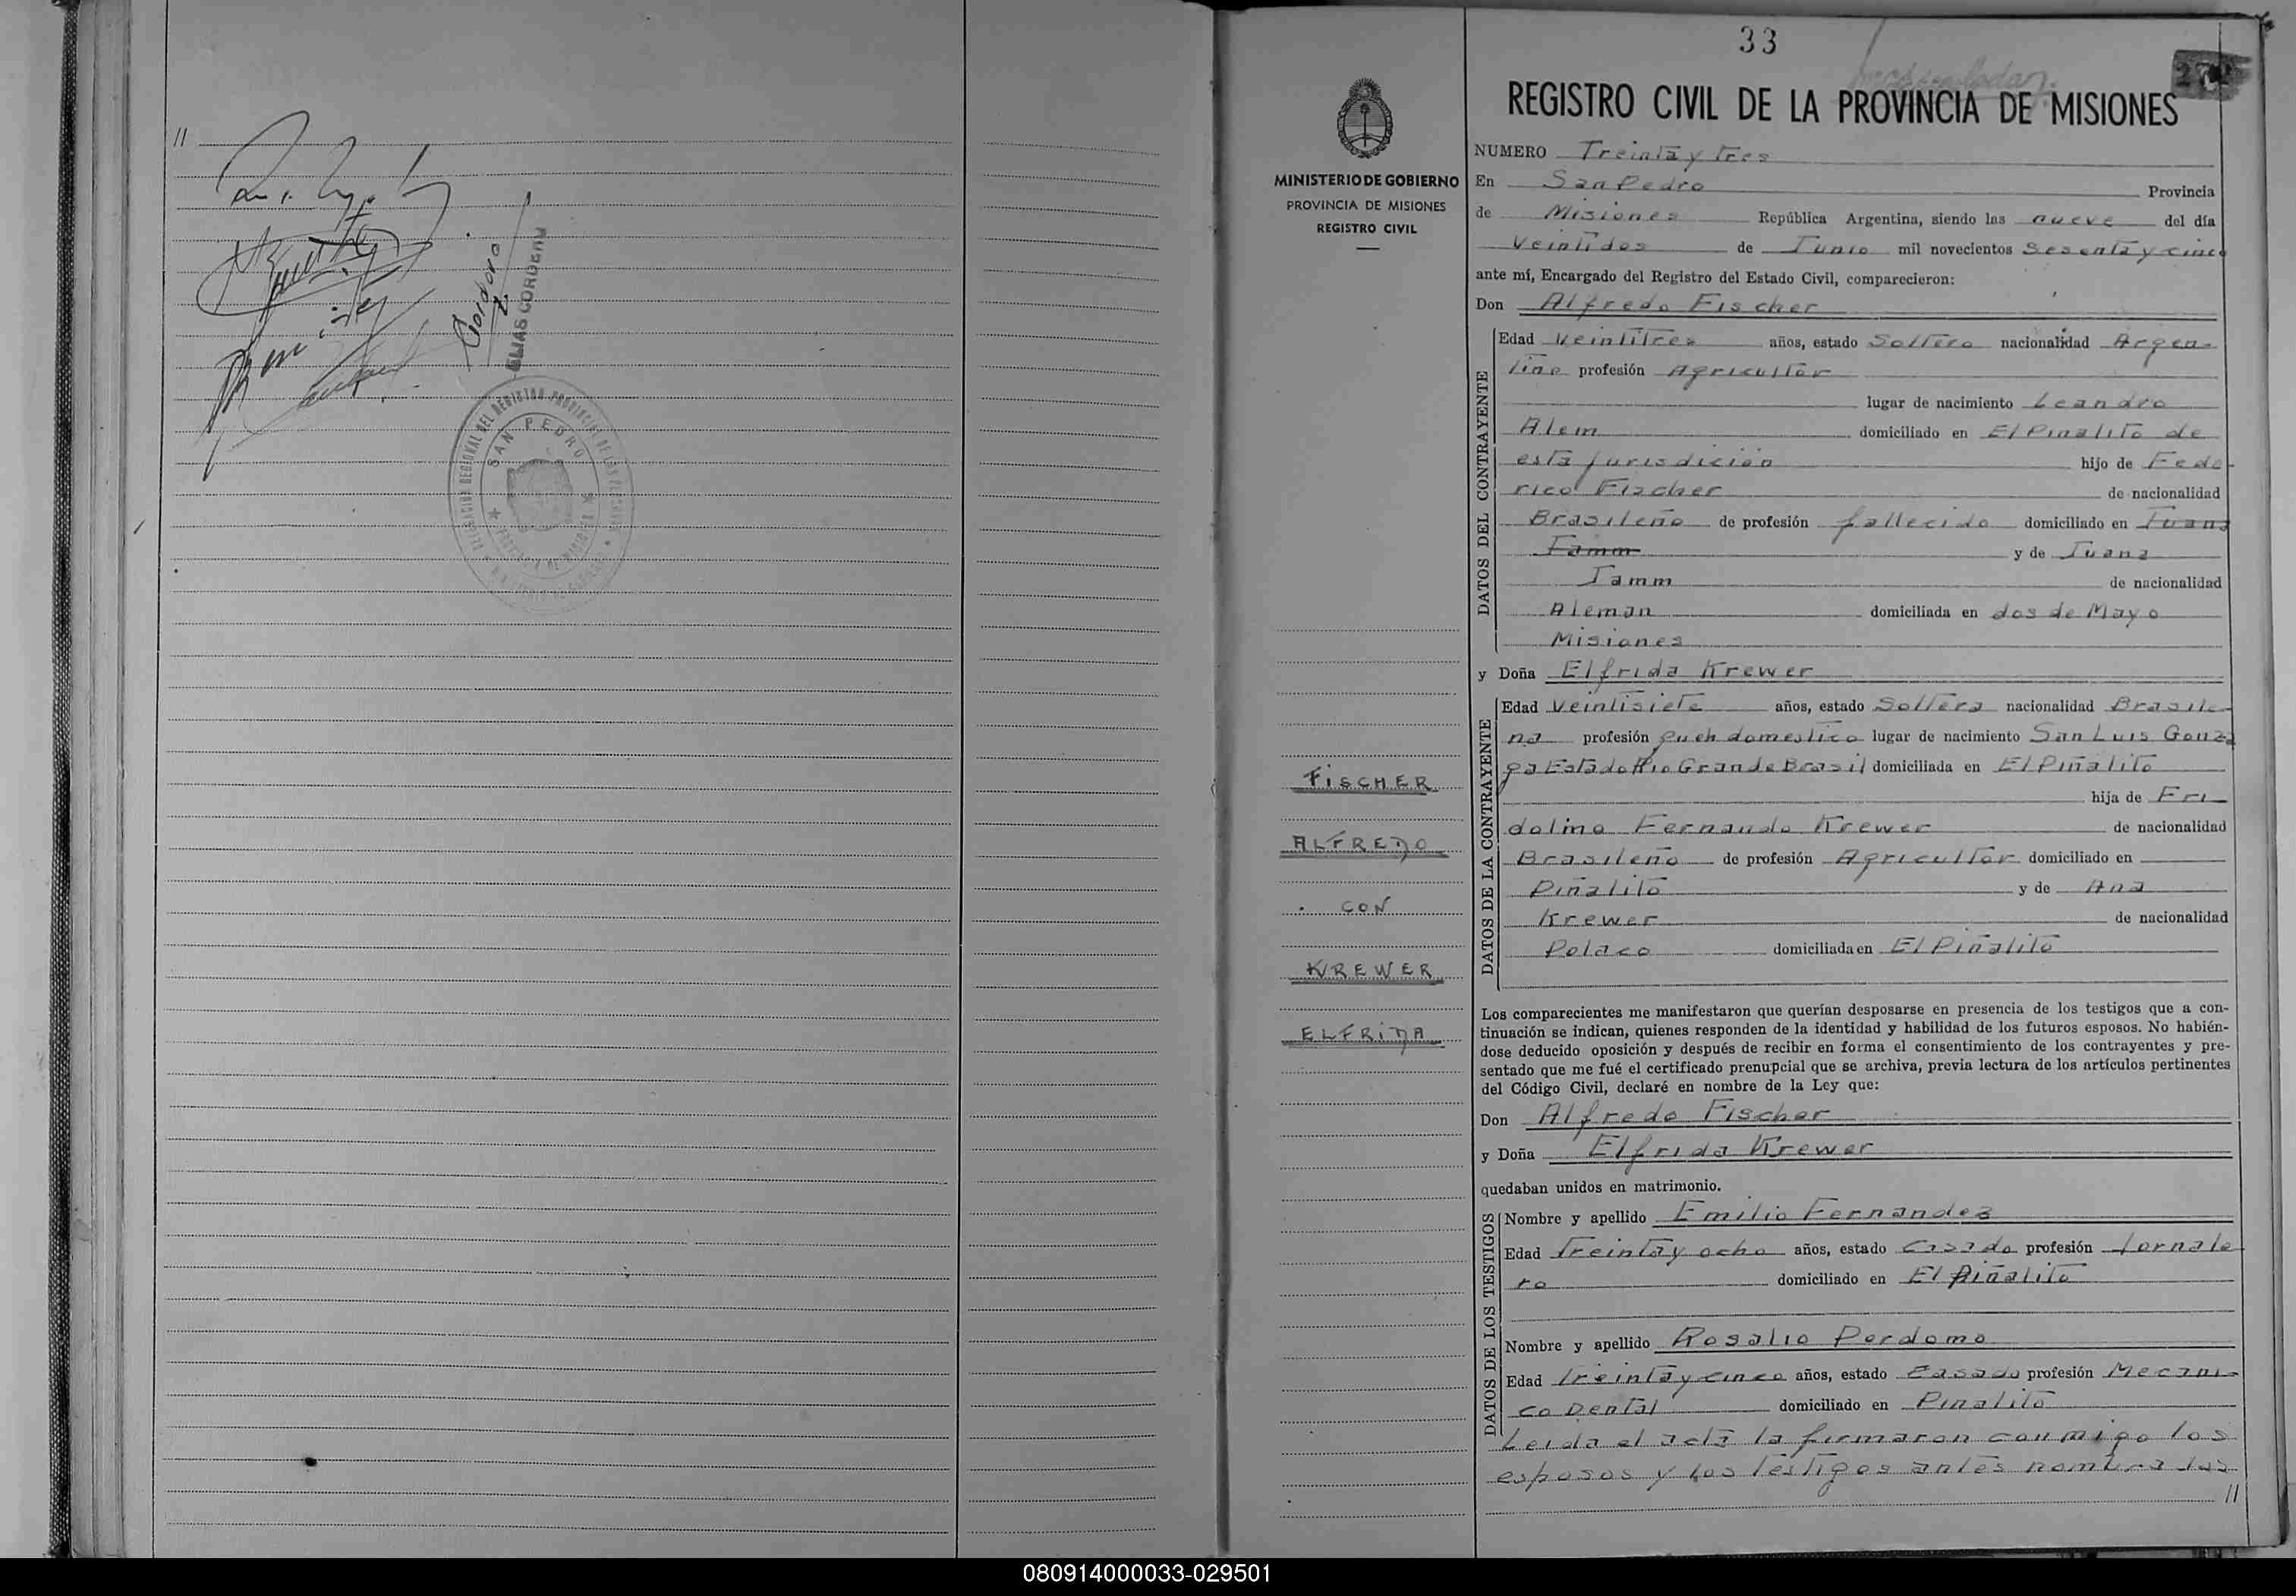 //
Cordova
ELIAS CORDERA
DELEGACION REGIONAL DEL REGISTRO PROVINCIAL DE LAS PERSONAS
SAN PEDRO
MISIONES
33
27
REGISTRO CIVIL DE LA PROVINCIA DE MISIONES
MINISTERIO DE GOBIERNO
PROVINCIA DE MISIONES
REGISTRO CIVIL
FISCHER
ALFREDO
CON
KREWER
ELFRIDA
NUMERO Treinta y tres
En San Pedro Provincia
de Misiones República Argentina, siendo las nueve del día
Veintidos de Junio mil novecientos Sesenta y cinco
ante mí, Encargado del Registro del Estado Civil, comparecieron:
Don Alfredo Fischer
DATOS DEL CONTRAYENTE
Edad Veintitres años, estado Soltero nacionalidad Argen-
tino profesión Agricultor
lugar de nacimiento Leandro
Alem domiciliado en El Pinalito de
esta jurisdición hijo de Fede-
rico Fischer de nacionalidad
Brasileño de profesión fallecido domiciliado en Juana
Tamm y de Juana
Tamm de nacionalidad
Aleman domiciliada en dos de Mayo
Misiones
y Doña Elfrida Krewer
DATOS DE LA CONTRAYENTE
Edad Veintisiete años, estado Soltera nacionalidad Brasile-
na profesión queh domestico lugar de nacimiento San Luis Gonza
ga Estado Rio Grande Brasil domiciliada en El Piñalito
hija de Fri
dolino Fernando Krewer de nacionalidad
Brasileño de profesión Agricultor domiciliado en
Piñalito y de Ana
Krewer de nacionalidad
Polaco domiciliada en El Piñalito
Los comparecientes me manifestaron que querían desposarse en presencia de los testigos que a con-
tinuación se indican, quienes responden de la identidad y habilidad de los futuros esposos. No habién-
dose deducido oposición y después de recibir en forma el consentimiento de los contrayentes y pre-
sentado que me fué el certificado prenupcial que se archiva, previa lectura de los artículos pertinentes
del Código Civil, declaré en nombre de la Ley que:
Don Alfredo Fischer
y Doña Elfrida Krewer
quedaban unidos en matrimonio.
DATOS DE LOS TESTIGOS
Nombre y apellido Emilio Fernandez
Edad Treinta y ocho años, estado Casado profesión Jornale
ro domiciliado en El Piñalito
Nombre y apellido Rosalio Perdomo
Edad treinta y cinco años, estado Casado profesión Mecani-
co Dental domiciliado en Pinalito
Leida el acta la firmaron conmigo los
esposos y los testigos antes nombrados
//
080914000033-029501